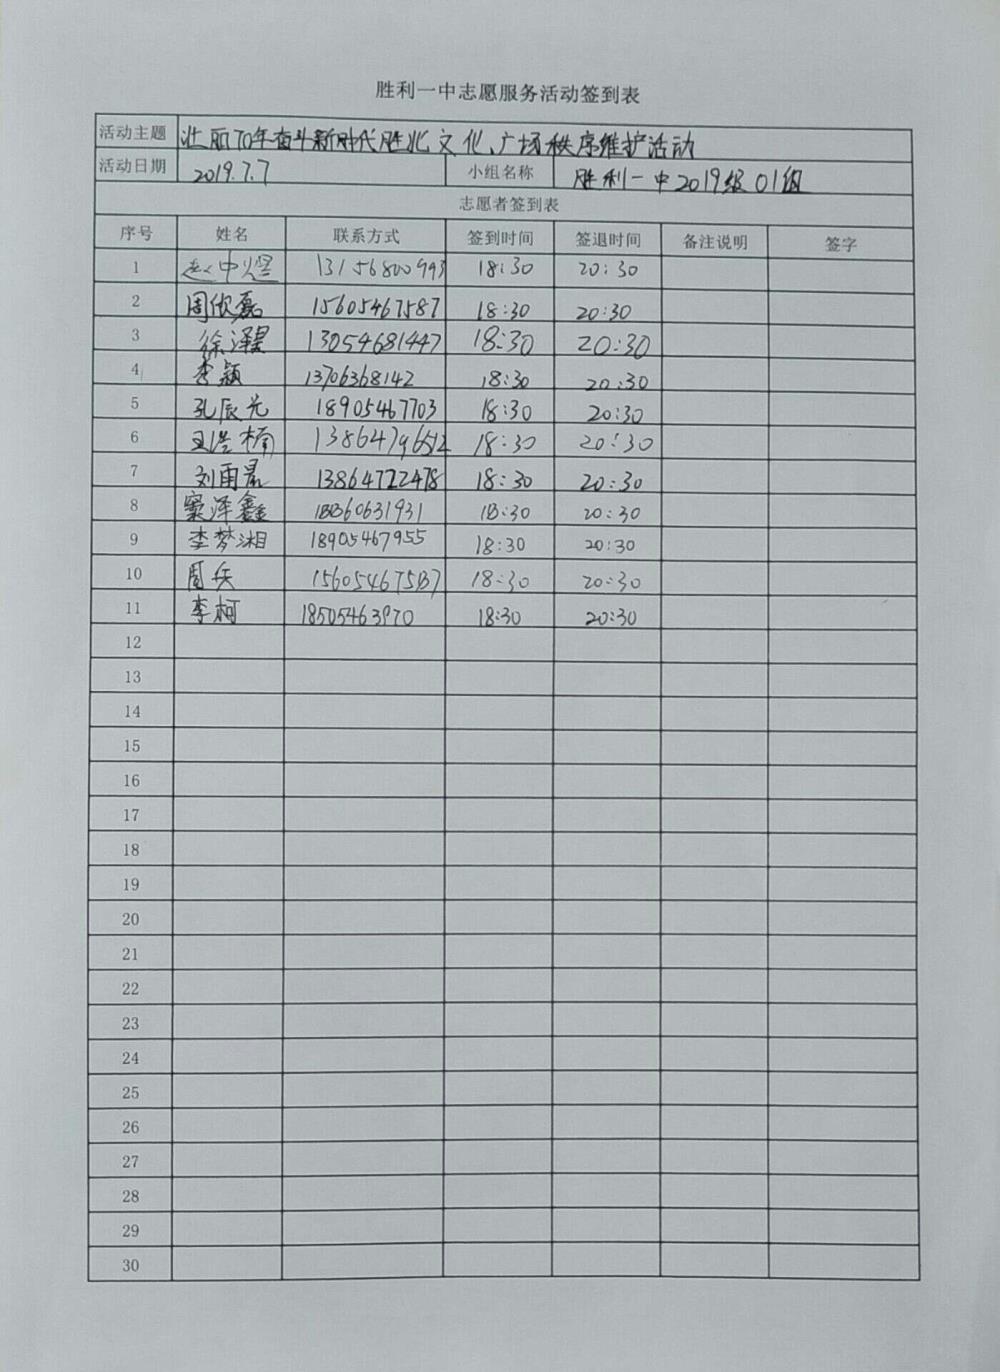 胜利一中志愿服务活动签到表
活动主题 壮丽70年奋斗新时代胜北文化、广场秩序维护活动
活动日期 2019.7.7 小组名称 胜利一中2019级01组
志愿者签到表
序号 姓名 联系方式 签到时间 签退时间 备注说明 签字
1 赵中煜 13156800993 18:30 20:30
2 周欣磊 15605467587 18:30 20:30
3 徐泽昊 13054681447 18:30 20:30
4 李颖 13706368142 18:30 20:30
5 孔辰光 18905467703 18:30 20:30
6 王浩楠 13864796512 18:30 20:30
7 刘雨晨 13864722478 18:30 20:30
8 窦泽鑫 18360631931 18:30 20:30
9 李梦湘 18905467955 18:30 20:30
10 周兵 15605467587 18:30 20:30
11 李柯 18505463970 18:30 20:30
12
13
14
15
16
17
18
19
20
21
22
23
24
25
26
27
28
29
30